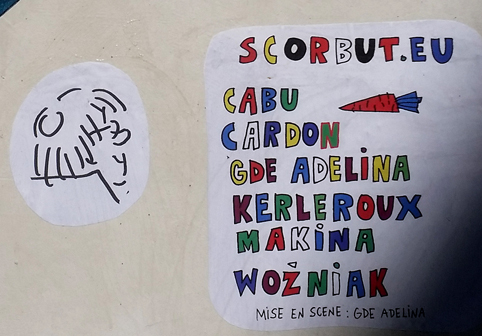 SCORBUT.EU
CABU
CARDON
GDE ADELiNA
KERLEROUX
MAKiNA
WOŹNiAK
MISE EN SCENE : GDE ADELiNA